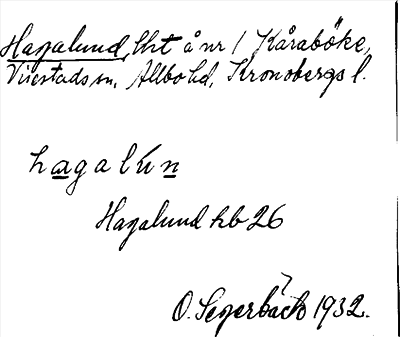 Hagalund, lht å nr 1 Kåraböke,
Virestads sn, Allbo hd, Kronobergs l.
hagalún
Hagalund hb 26
O. Segerbäck 1932.